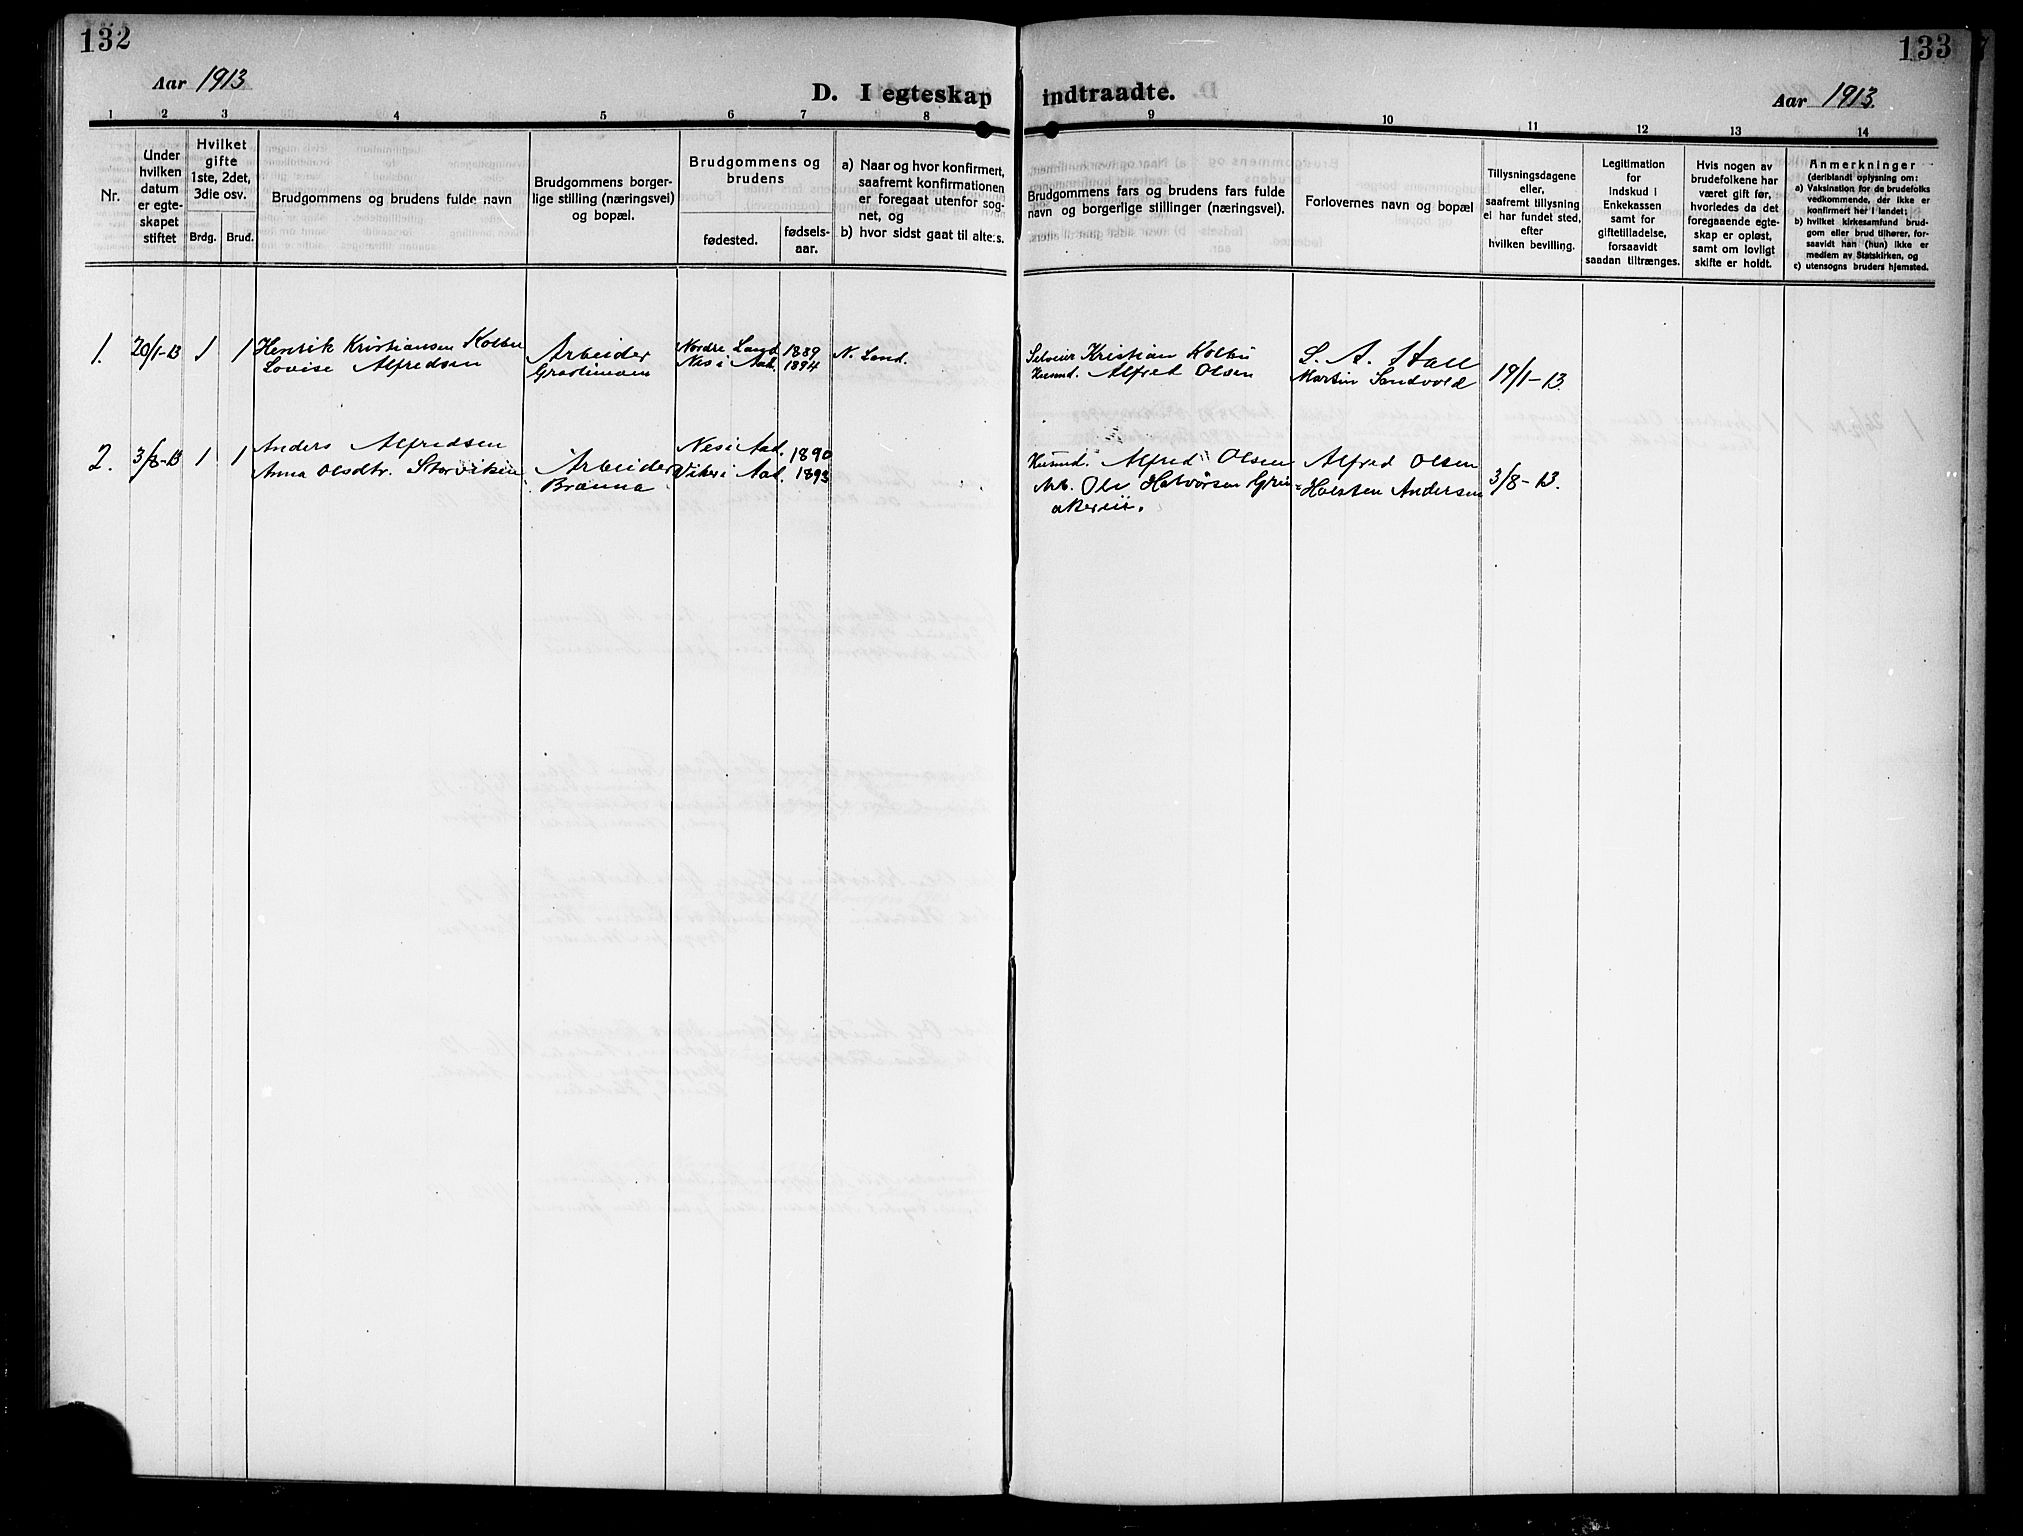 132
Aar 1913
D. I egteskap
1 2 3 4 5 6 7 8
Nr.
Under hvilken datum er egte-skapet stiftet
Hvilket gifte 1ste, 2det, 3die osv.
Brdg. Brud.
Brudgommens og brudens fulde navn
Brudgommens borger-lige stilling (næringsvei) og bopæl.
Brudgommens og brudens
fødested. fødsels-aar.
a) Naar og hvor konfirmert, saafremt konfirmationen er foregaat utenfor sog-net, og
b) hvor sidst gaat til alters.
1. 20/1-13 1 1 Henrik Kristiansen Kolbu Arbeider Nordre Land 1889 N. Land.
Lovise Alfredsen Nes i Aad. 1894
2. 3/8-13 1 1 Anders Alfredsen Arbeider Nes i Aad. 1890
Anna Olsdtr. Storviken Brænna Viker i Aad. 1893
133
indtraadte.
Aar 1913.
9 10 11 12 13 14
Brudgommens fars og brudens fars fulde navn og borgerlige stillinger (næringsvei).
Forlovernes navn og bopæl
Tillysningsdagene eller, saafremt tillysning ei har fundet sted, efter hvilken bevilling.
Legitimation for indskud i Enkekassen samt for giftetilladelse, forsaavidt saadan tiltrænges.
Hvis nogen av brudefolkene har været gift før, hvorledes da det foregaaende egte-skap er opløst, samt om lovligt skifte er holdt.
Anmerkninger
(deriblandt oplysning om:
a) Vaksination for de brudefolks vedkommende, der ikke er konfirmert her i landet;
b) hvilket kirkesamfund brud-gom eller brud tilhører, for-saavidt han (hun) ikke er medlem av Statskirken, og
c) utensogns bruders hjemsted.
Selveier Kristian Kolbu
Husmd. Alfred Olsen Martin Sandvold 19/1-13.
Husmd. Alfred Olsen Alfred Olsen
Arb. Ole Halvorsen Holsten Andersen 3/8-13.